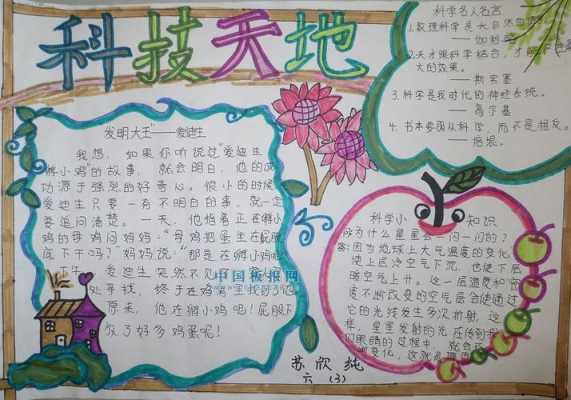 科技天地
发明大王"——爱迪生
我想，如果你听说过"爱迪生
孵小鸡"的故事，就会明白，他的成
功源于强烈的好奇心。很小的时候
爱迪生只要一有不明白的事，就一定
要追问清楚。一天，他指着正在孵小
鸡的母鸡问妈妈："母鸡把蛋坐在屁股
底下干吗？"妈妈说："那是在孵小鸡
爱迪生突然不见
处寻找，终于在鸡窝里找到了他
原来，他在孵小鸡呢！屁股下
放了好多鸡蛋呢！
中国板报网
科学名人名言
1.数理科学是大自然
——伽利略
2.天才跟科学结合，才能
大的效果。
——斯宾塞
3.科学是我时代的神经系统。
——高尔基
4.书本要围从科学，而不是相反。
——培根。
科学小知识
成为什么星星会一闪一闪的？
答:因为地球上大气温度的变化
使上层冷空气下沉，也使下层
暖空气上升。这一层温度和密
度不断改变的空气层会使通过
它的光线发生多次折射，这
样，星星发射的光在传到我
们眼睛的过程中，就会
变化，这就是
苏欣纯
六（3）